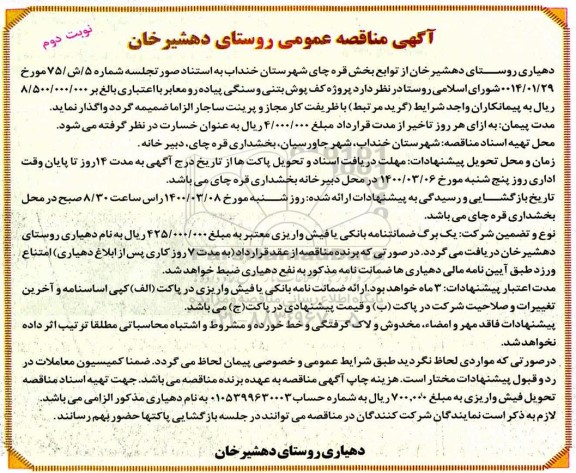 آگهی مناقصه عمومی روستای دهشیرخان
نوبت دوم
دهیاری روستای دهشیرخان از توابع بخش قره چای شهرستان خنداب به استناد صورتجلسه شماره ۵/ش/۷۵ مورخ
۰۰۱۴/۰۱/۲۹ شورای اسلامی روستا در نظر دارد پروژه کف پوش بتنی و سنگی پیاده رو معابر با اعتباری بالغ بر ۸/۵۰۰/۰۰۰/۰۰۰
ریال به پیمانکاران واجد شرایط (گرید مرتبط) با ظریفت کار مجاز و پرینت ساجار الزاما ضمیمه گردد واگذار نماید.
مدت پیمان: به ازای هر روز تاخیر از مدت قرارداد مبلغ ۴/۰۰۰/۰۰۰ ریال به عنوان خسارت در نظر گرفته می شود.
محل تهیه اسناد مناقصه: شهرستان خنداب، شهر جاورسیان، بخشداری قره چای، دبیرخانه.
زمان و محل تحویل پیشنهادات: مهلت دریافت اسناد و تحویل پاکت ها از تاریخ درج آگهی به مدت ۱۴ روز تا پایان وقت
اداری روز پنج شنبه مورخ ۱۴۰۰/۰۳/۰۶ در محل دبیرخانه بخشداری قره چای می باشد.
تاریخ بازگشایی و رسیدگی به پیشنهادات ارائه شده: روز شنبه مورخ ۱۴۰۰/۰۳/۰۸ راس ساعت ۸/۳۰ صبح در محل
بخشداری قره چای می باشد.
نوع و تضمین شرکت: یک برگ ضمانتنامه بانکی یا فیش واریزی معتبر به مبلغ ۴۲۵/۰۰۰/۰۰۰ ریال به نام دهیاری روستای
دهشیرخان دریافت می گردد. در صورتی که برنده مناقصه از عقد قرارداد (به مدت ۷ روز کاری پس از ابلاغ دهیاری) امتناع
ورزد طبق آیین نامه مالی دهیاری ها ضمانت نامه مذکور به نفع دهیاری ضبط خواهد شد.
مدت اعتبار پیشنهادات: ۳ ماه خواهد بود. ارائه ضمانت نامه بانکی یا فیش واریزی در پاکت (الف) کپی اساسنامه و آخرین
تغییرات و صلاحیت شرکت در پاکت (ب) و قیمت پیشنهادی در پاکت (ج) می باشد.
پیشنهادات فاقد مهر و امضاء، مخدوش و لاک گرفتگی و خط خورده و مشروط و اشتباه محاسباتی مطلقا ترتیب اثر داده
نخواهد شد.
در صورتی که مواردی لحاظ نگردید طبق شرایط عمومی و خصوصی پیمان لحاظ می گردد. ضمنا کمیسیون معاملات در
رد و قبول پیشنهادات مختار است. هزینه چاپ آگهی مناقصه به عهده برنده مناقصه می باشد. جهت تهیه اسناد مناقصه
تحویل فیش واریزی به مبلغ ۷۰۰,۰۰۰ ریال به شماره حساب ۰۱۰۵۳۹۹۶۳۰۰۰۳ به نام دهیاری مذکور الزامی می باشد.
لازم به ذکر است نمایندگان شرکت کنندگان در مناقصه می توانند در جلسه بازگشایی پاکتها حضور بهم رسانند.
دهیاری روستای دهشیرخان